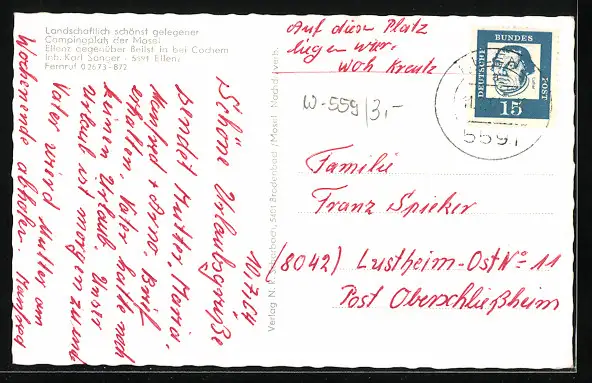 Landschaftlich schönst gelegener
Campingplatz der Mosel
Ellenz gegenüber Beilstein bei Cochem
Inh. Karl Sänger - 5591 Ellenz
Fernruf 02673-872
Auf diesen Platz
liegen wir.
woh Kreutz
W-559/3,-
DEUTSCHE BUNDES POST
15
5591
10.7.64
Schöne Urlaubsgrüße
sendet Mutter, Maria,
Manfred + Brief
erhalten, Vater hatte noch
keinen Urlaub. Unser
Urlaub ist morgen zu end
Vater wird Mutter am
Wochenende abholen. Manfred
Verlag N. 5401 Brodenbach /Mosel Nachdr. verb.
Familie
Franz Spieker
(8042) Lustheim-Ost No 11
Post Oberschließheim